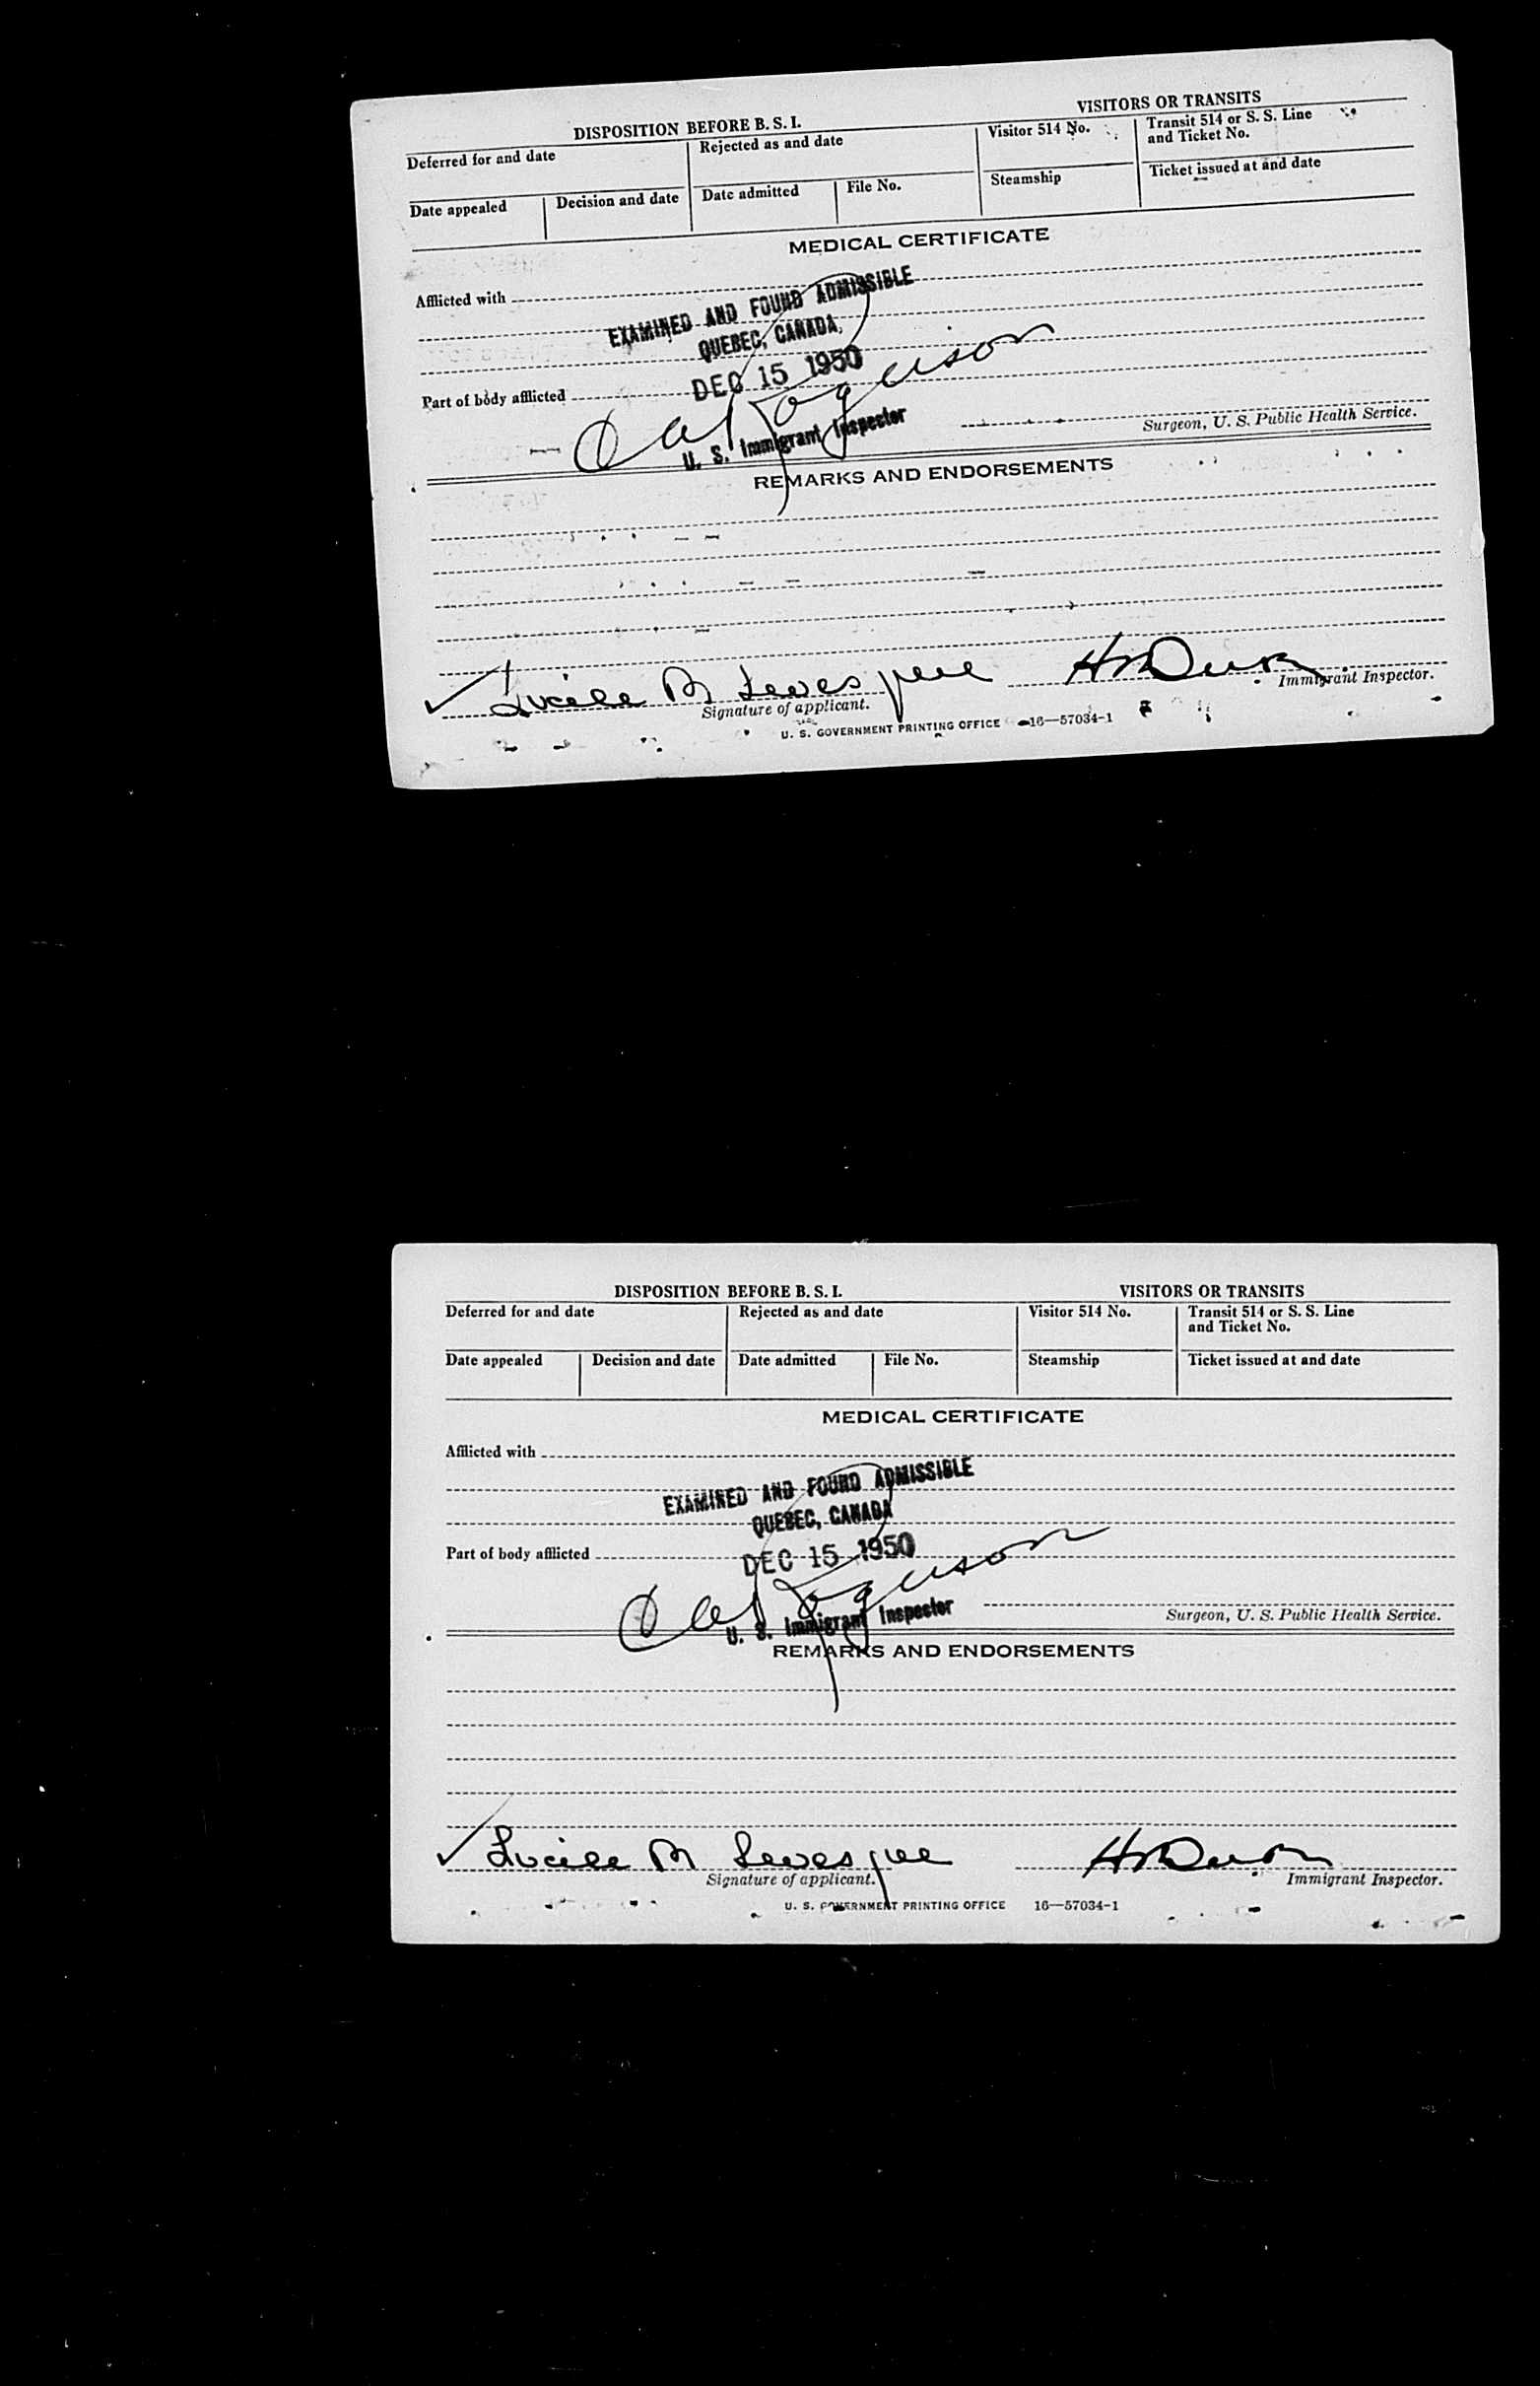 DISPOSITION BEFORE B. S. I.
VISITORS OR TRANSITS
Deferred for and date
Rejected as and date
Visitor 514 No.
Transit 514 or S. S. Line
and Ticket No.
Date appealed
Decision and date
Date admitted
File No.
Steamship
Ticket issued at and date
MEDICAL CERTIFICATE
Afflicted with
EXAMINED AND FOUND ADMISSIBLE
QUEBEC, CANADA,
Part of body afflicted
DEC 15 1950
U. S. Immigrant Inspector
Surgeon, U. S. Public Health Service.
REMARKS AND ENDORSEMENTS
Lucile M Levesque
Signature of applicant.
Immigrant Inspector.
U. S. GOVERNMENT PRINTING OFFICE 16—57034-1
DISPOSITION BEFORE B. S. I.
VISITORS OR TRANSITS
Deferred for and date
Rejected as and date
Visitor 514 No.
Transit 514 or S. S. Line
and Ticket No.
Date appealed
Decision and date
Date admitted
File No.
Steamship
Ticket issued at and date
MEDICAL CERTIFICATE
Afflicted with
EXAMINED AND FOUND ADMISSIBLE
QUEBEC, CANADA
Part of body afflicted
DEC 15 1950
U. S. Immigrant Inspector
Surgeon, U. S. Public Health Service.
REMARKS AND ENDORSEMENTS
Lucile M Levesque
Signature of applicant.
Immigrant Inspector.
U. S. GOVERNMENT PRINTING OFFICE 16—57034-1